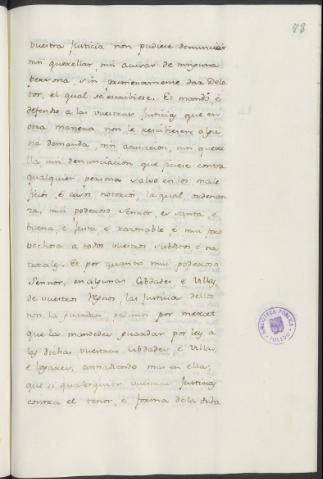 78
vuestra Justicia non pudiese denunciar
nin querellar, nin acusar de ninguna
persona, sin primeramente dar dela
tor, el qual se escribiese. Et mandó, é
defendio a las vuestras Justicias que en
otra manera non le rescibiesen algu
na demanda, nin acusacion, nin quere
lla, nin denunciacion que ficiese contra
qualquier persona salvo en los male
ficios, é casos notorios, la qual ordenan
za, mui poderoso Señor, es santa, é
buena, é justa é razonable é mui pro
bechosa a todos vuestros subditos é na
turales. Et por quanto mui poderoso
Señor, en algunas Cibdades é Villas
de vuestros Regnos, las Justicias dellos
non la guardan, pedimos por merced
que la mandedes guardar por ley a
las dichas vuestras Cibdades é Villas,
é Logares, annadiendo mas en ella,
que si qualesquier vuestras Justicias
contra el tenor, é forma de la dicha
BIBLIOTECA PUBLICA
TOLEDO